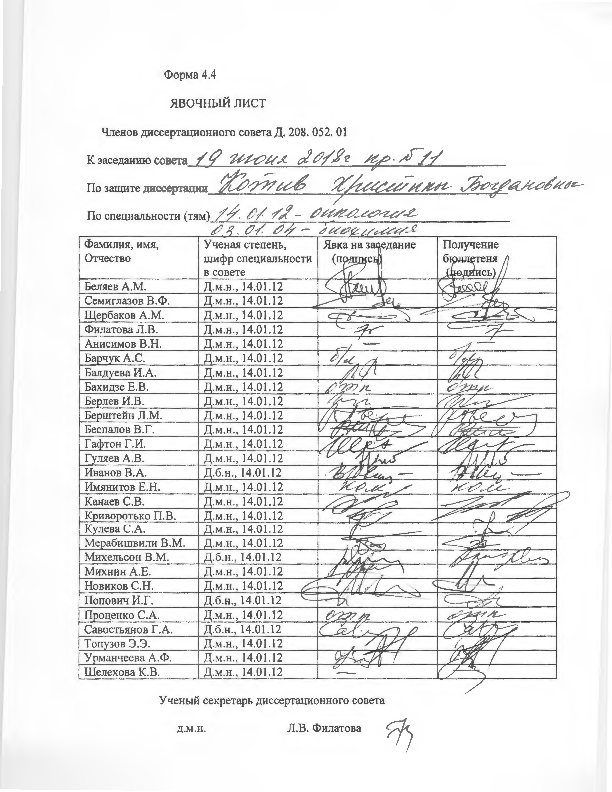 Форма 4.4
ЯВОЧНЫЙ ЛИСТ
Членов диссертационного совета Д. 208. 052. 01
К заседанию совета 19 июня 2018г пр. №11
По защите диссертации Котив Христины Богдановны
По специальности (тям) 14.01.12 - онкология
03.01.04 - биохимия
Фамилия, имя, Отчество Ученая степень, шифр специальности в совете Явка на заседание (подпись) Получение бюллетеня (подпись)
Беляев А.М. Д.м.н., 14.01.12
Семиглазов В.Ф. Д.м.н., 14.01.12
Щербаков А.М. Д.м.н., 14.01.12
Филатова Л.В. Д.м.н., 14.01.12
Анисимов В.Н. Д.м.н., 14.01.12 — —
Барчук А.С. Д.м.н., 14.01.12 б/л б/л
Балдуева И.А. Д.м.н., 14.01.12
Бахидзе Е.В. Д.м.н., 14.01.12 отп отп
Берлев И.В. Д.м.н., 14.01.12
Берштейн Л.М. Д.м.н., 14.01.12
Беспалов В.Г. Д.м.н., 14.01.12
Гафтон Г.И. Д.м.н., 14.01.12
Гуляев А.В. Д.м.н., 14.01.12
Иванов В.А. Д.б.н., 14.01.12
Имянитов Е.Н. Д.м.н., 14.01.12 ком ком
Канаев С.В. Д.м.н., 14.01.12
Криворотько П.В. Д.м.н., 14.01.12
Кулева С.А. Д.м.н., 14.01.12
Мерабишвили В.М. Д.м.н., 14.01.12
Михельсон В.М. Д.б.н., 14.01.12
Михнин А.Е. Д.м.н., 14.01.12
Новиков С.Н. Д.м.н., 14.01.12
Попович И.Г. Д.б.н., 14.01.12
Проценко С.А. Д.м.н., 14.01.12 отп отп
Савостьянов Г.А. Д.б.н., 14.01.12
Топузов Э.Э. Д.м.н., 14.01.12
Урманчеева А.Ф. Д.м.н., 14.01.12
Шелехова К.В. Д.м.н., 14.01.12 —
Ученый секретарь диссертационного совета
д.м.н. Л.В. Филатова